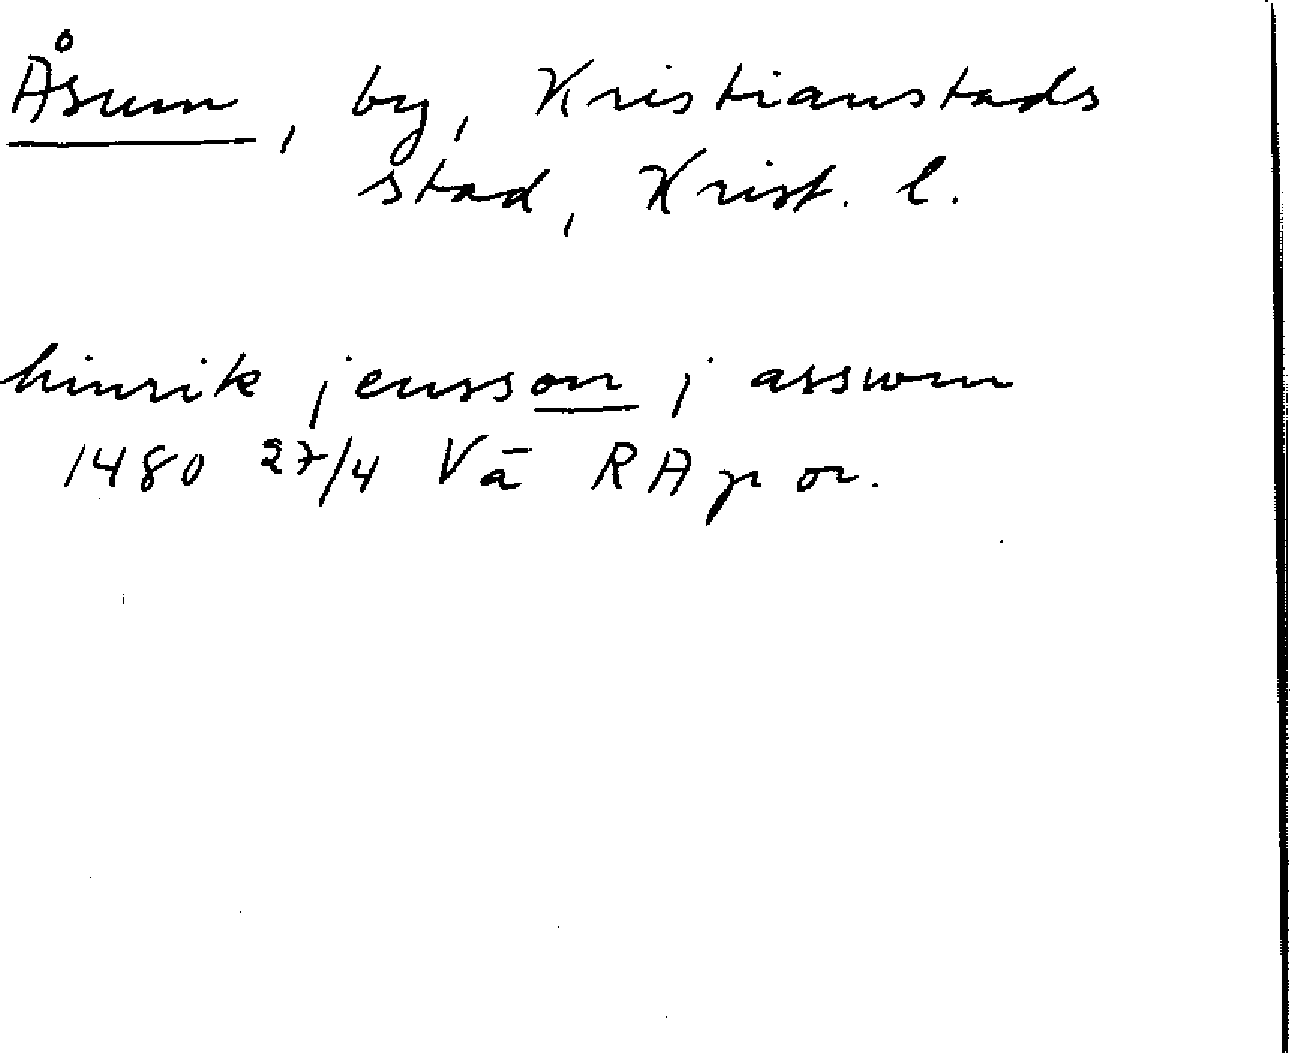 Åsum, by, Kristianstads
stad, Krist. l.
hinrik jensson j asswm
1480 27/4 Vä RAp or.